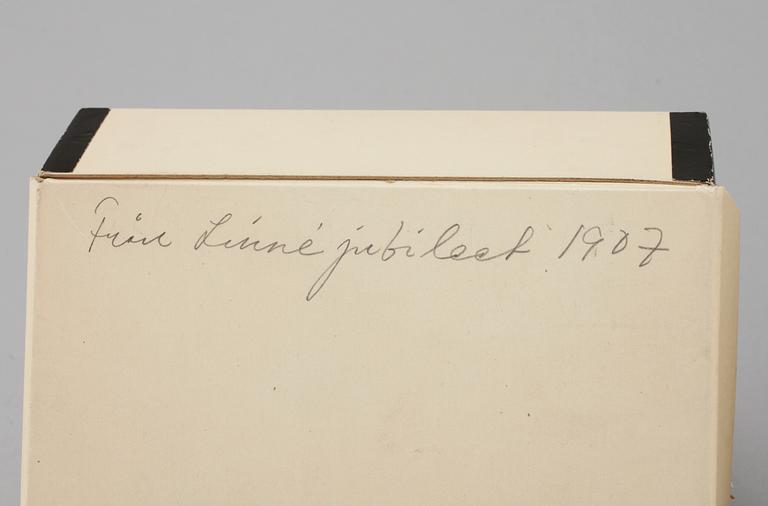 Från Linné jubileet 1907